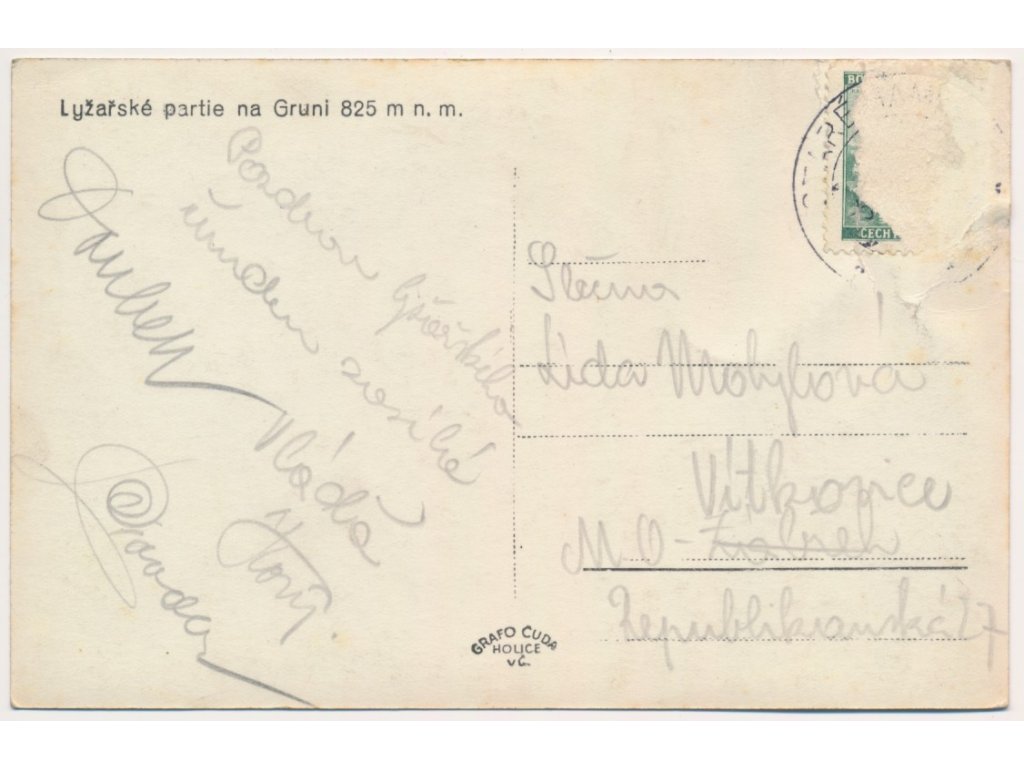 Lyžařské partie na Gruni 825 m n. m.
Pozdrav lyžařského
zasílá
Vláda
Slečna
Lída Mohylová
Vítkovice
M O - Zábřeh
Republikánská 27
GRAFO ČUDA
HOLICE
V Č.
BO
ČECH